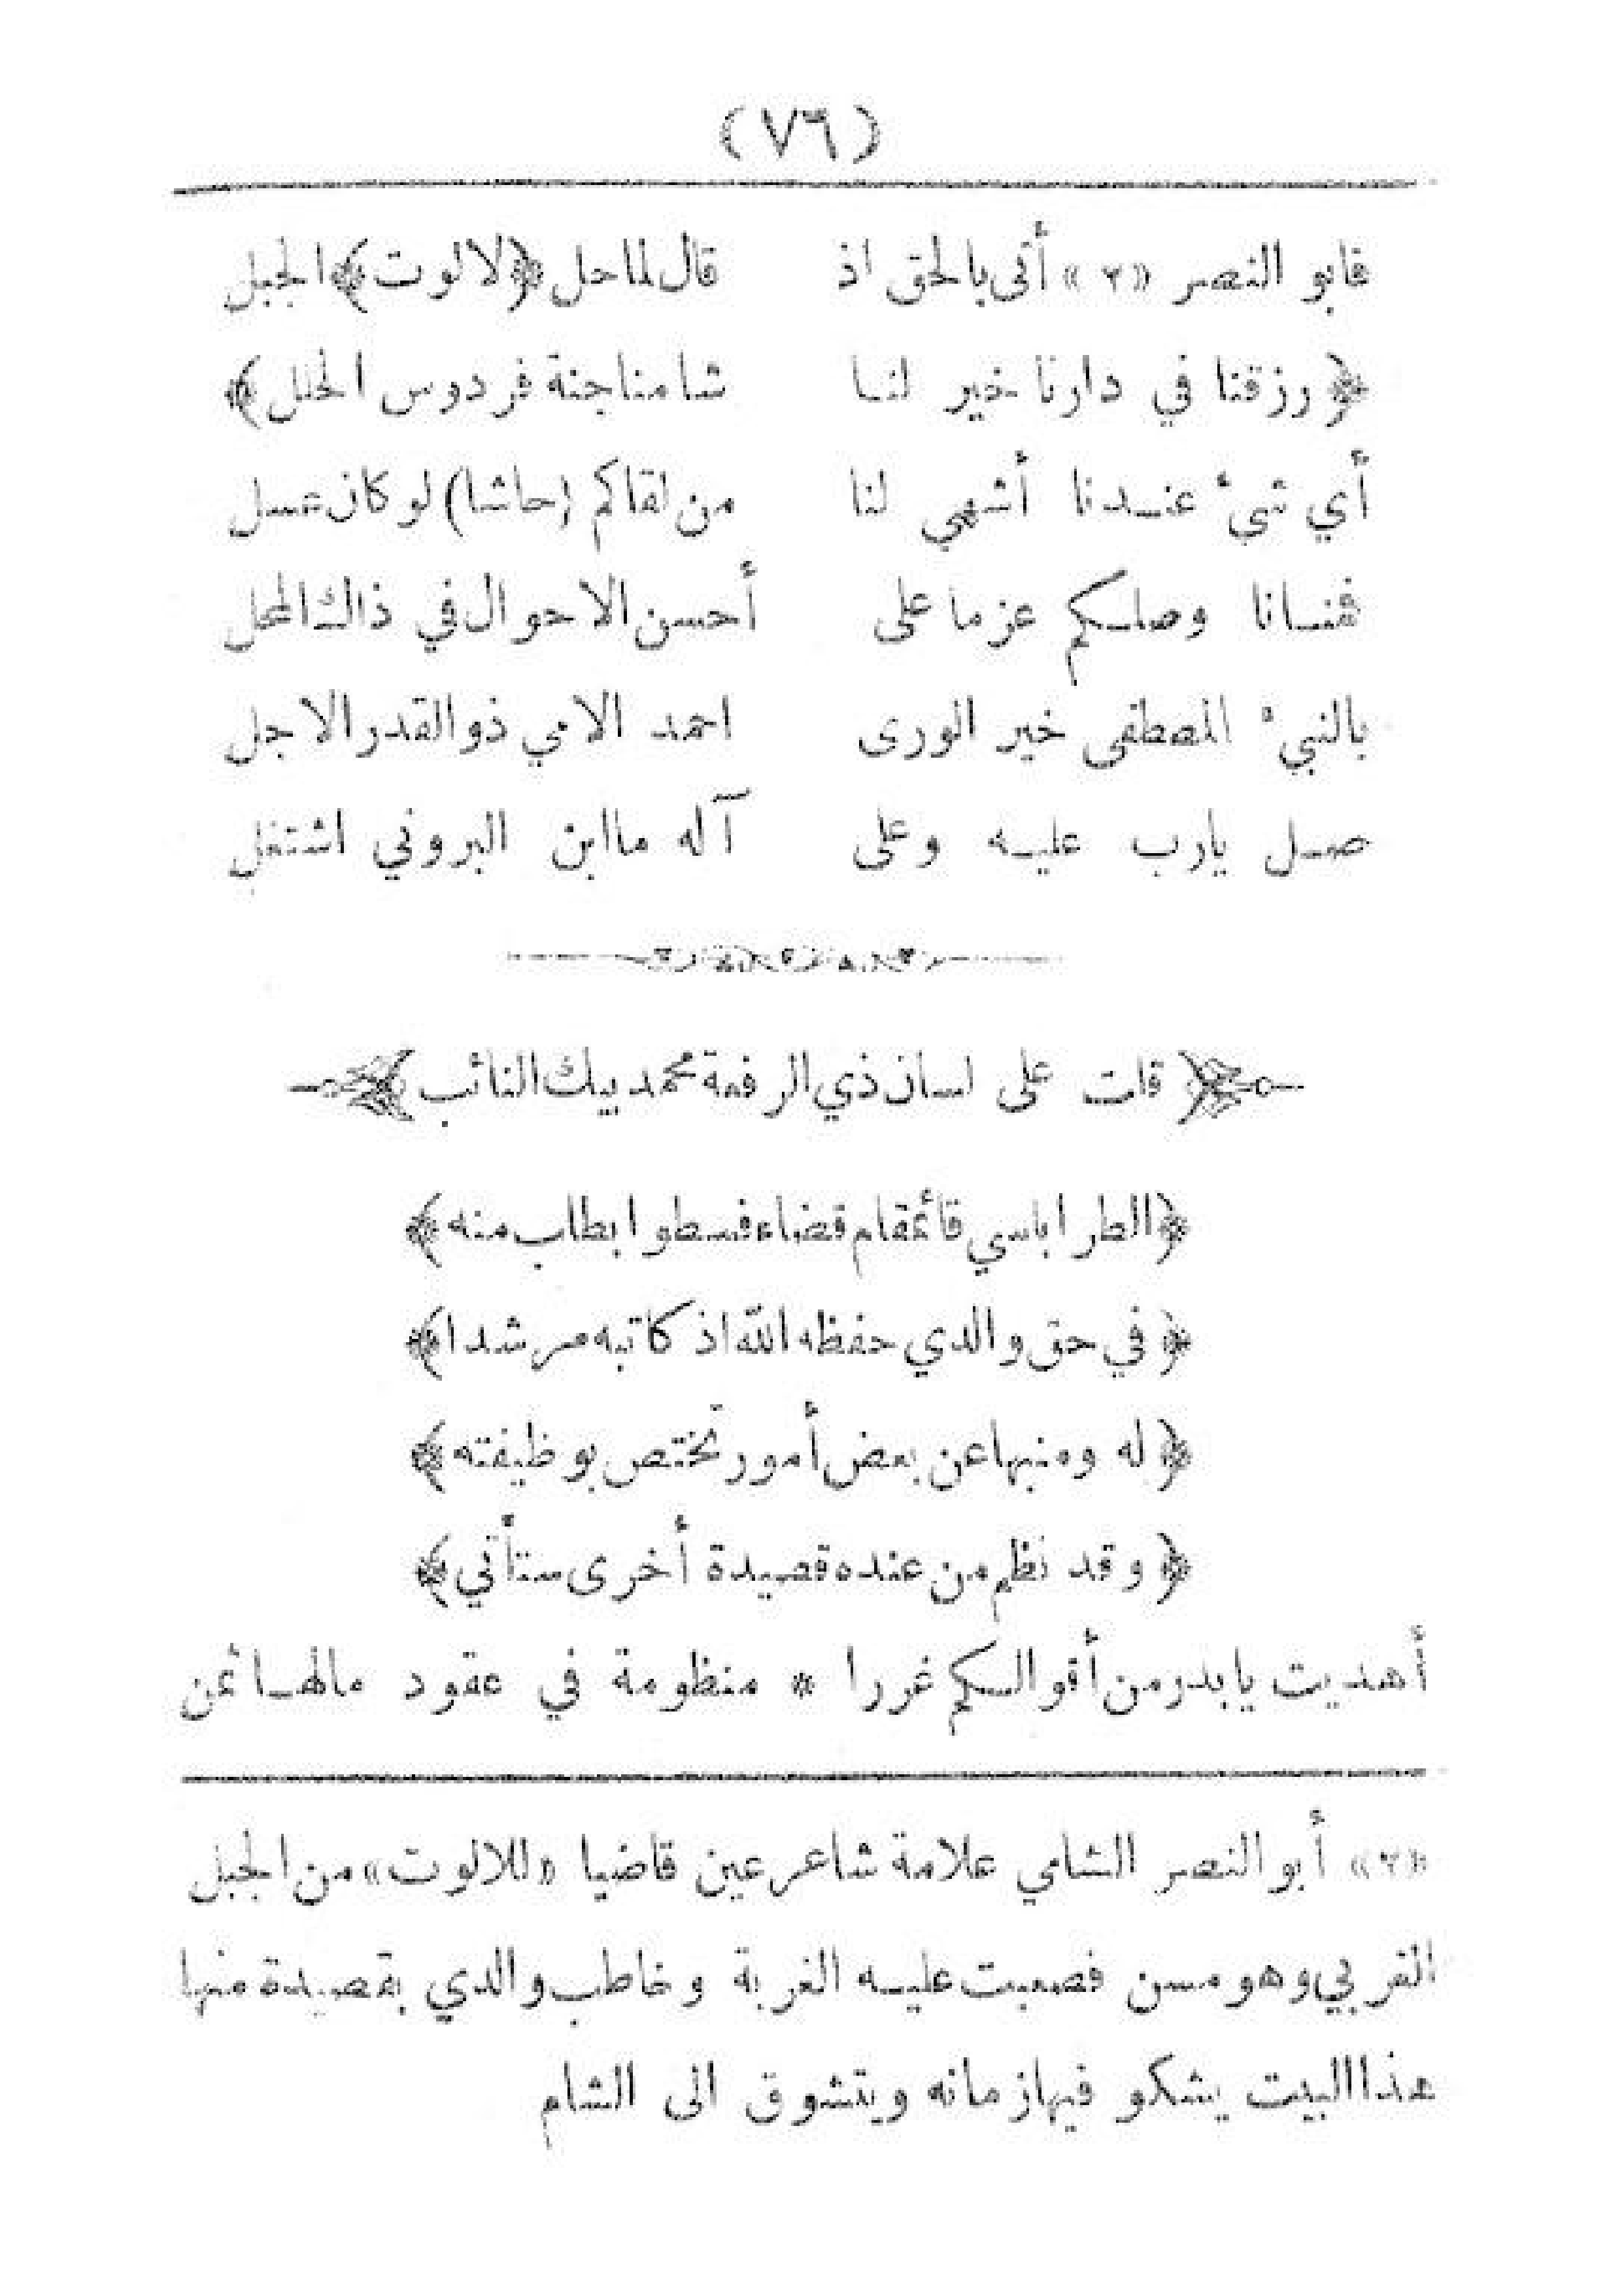 (٧٦)
فابو النصر «٢» أتى بالحق اذ قال لما حل ﴿لالوت﴾ الجبل
﴿رزقنا في دارنا خير لنا شامنا جنة فردوس الحلل﴾
أي شيء عندنا أشهى لنا من لقاكم (حاشا) لو كان عسل
فنسانا وصلكم عزما على أحسن الاحوال في ذاك المحل
بالنبيء المصطفى خير الورى احمد الامي ذو القدر الاجل
صل يارب عليه وعلى آله ما ابن البروني اشتغل
﴿قلت على لسان ذي الرفعة محمد بيك النائب﴾
﴿الطرابلسي قائمقام قضاء فسطو ا بطلب منه﴾
﴿في حق والدي حفظه الله اذ كاتبه مرشدا﴾
﴿له ومنبها عن بعض أمور تختص بوظيفته﴾
﴿وقد نظم من عنده قصيدة أخرى ستأتي﴾
أهديت يابدر من أقوالكم غررا * منظومة في عقود مالها ثمن
«٢» أبو النصر الشامي علامة شاعر عين قاضيا «للالوت» من الجبل
الغربي وهو مسن فصعبت عليه الغربة وخاطب والدي بقصيدة منها
هذا البيت يشكو فيها زمانه ويتشوق الى الشام